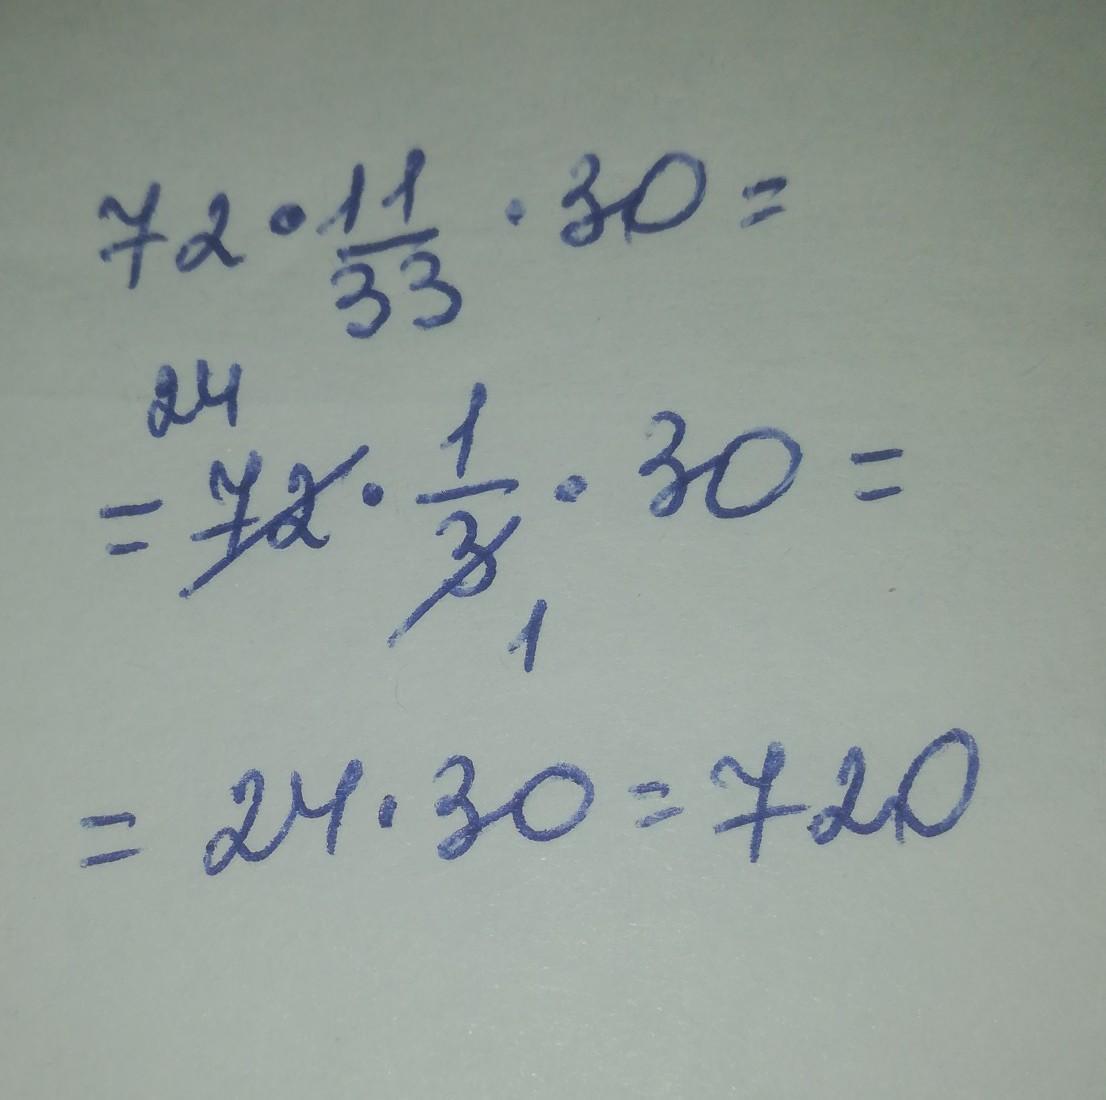 72 · 11/33 · 30 =
24
= 72 · 1/3 · 30 =
1
= 24 · 30 = 720